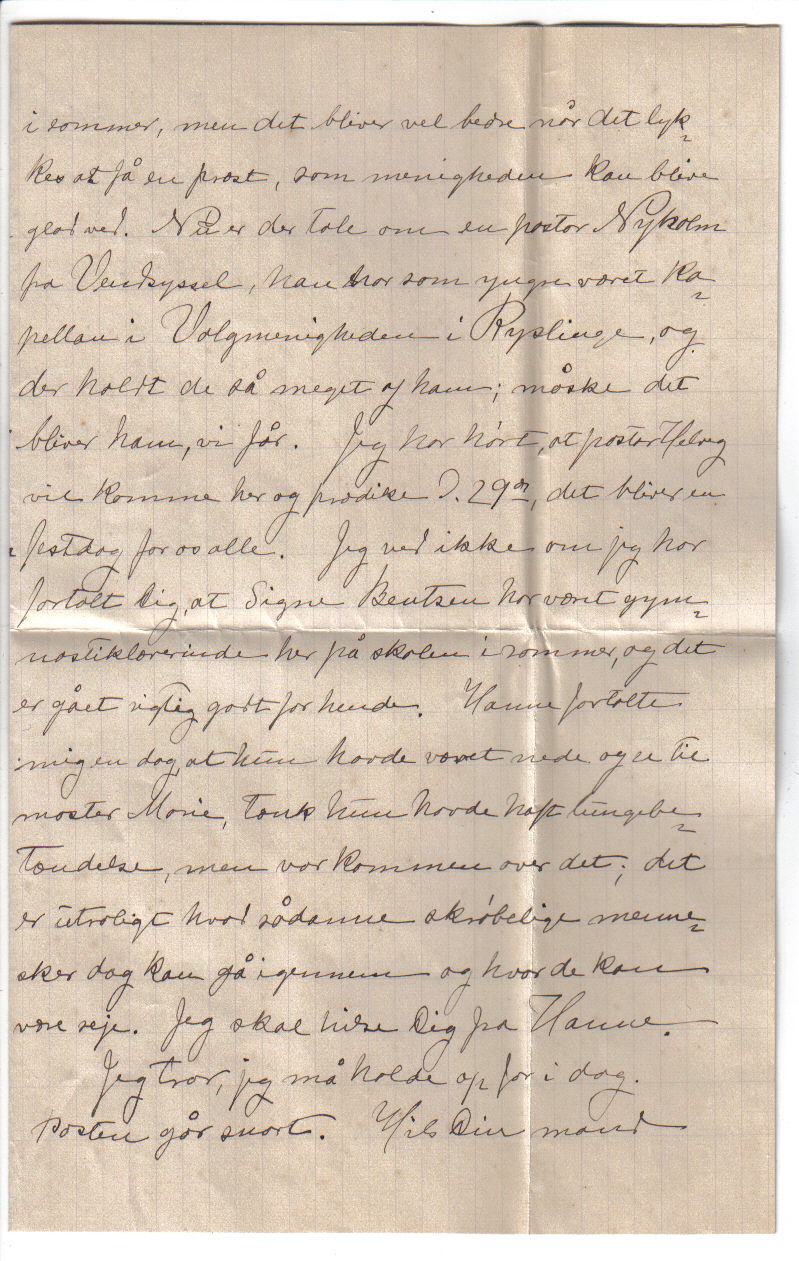 i sommer, men det bliver vel bedre når det lyk=
kes at få en præst, som menigheden kan blive
glad ved. Nu er der tale om en pastor Nyholm
fra Vendsyssel, han har som yngre været ka=
pellan i Valgmenigheden i Ryslinge, og
der holdt de så meget af ham; måske det
bliver ham, vi får. Jeg har hørt, at pastor Helveg
vil komme her og prædike d. 29de, det bliver en
festdag for os alle. Jeg ved ikke om jeg har
fortalt Dig, at Signe Bentsen har været gym=
nastiklærerinde her på skolen i sommer, og det
er gået rigtig godt for hende. Hanne fortalte
mig en dag, at hun havde været nede og se til
moster Marie, tænk hun havde haft lungebe=
tændelse, men var kommen over det; det
er utroligt hvad sådanne skrøbelige menne=
sker dog kan gå igennem og hvor de kan
være seje. Jeg skal hilse Dig fra Hanne.
Jeg tror, jeg må holde op for i dag.
Posten går snart. Hils Din mand